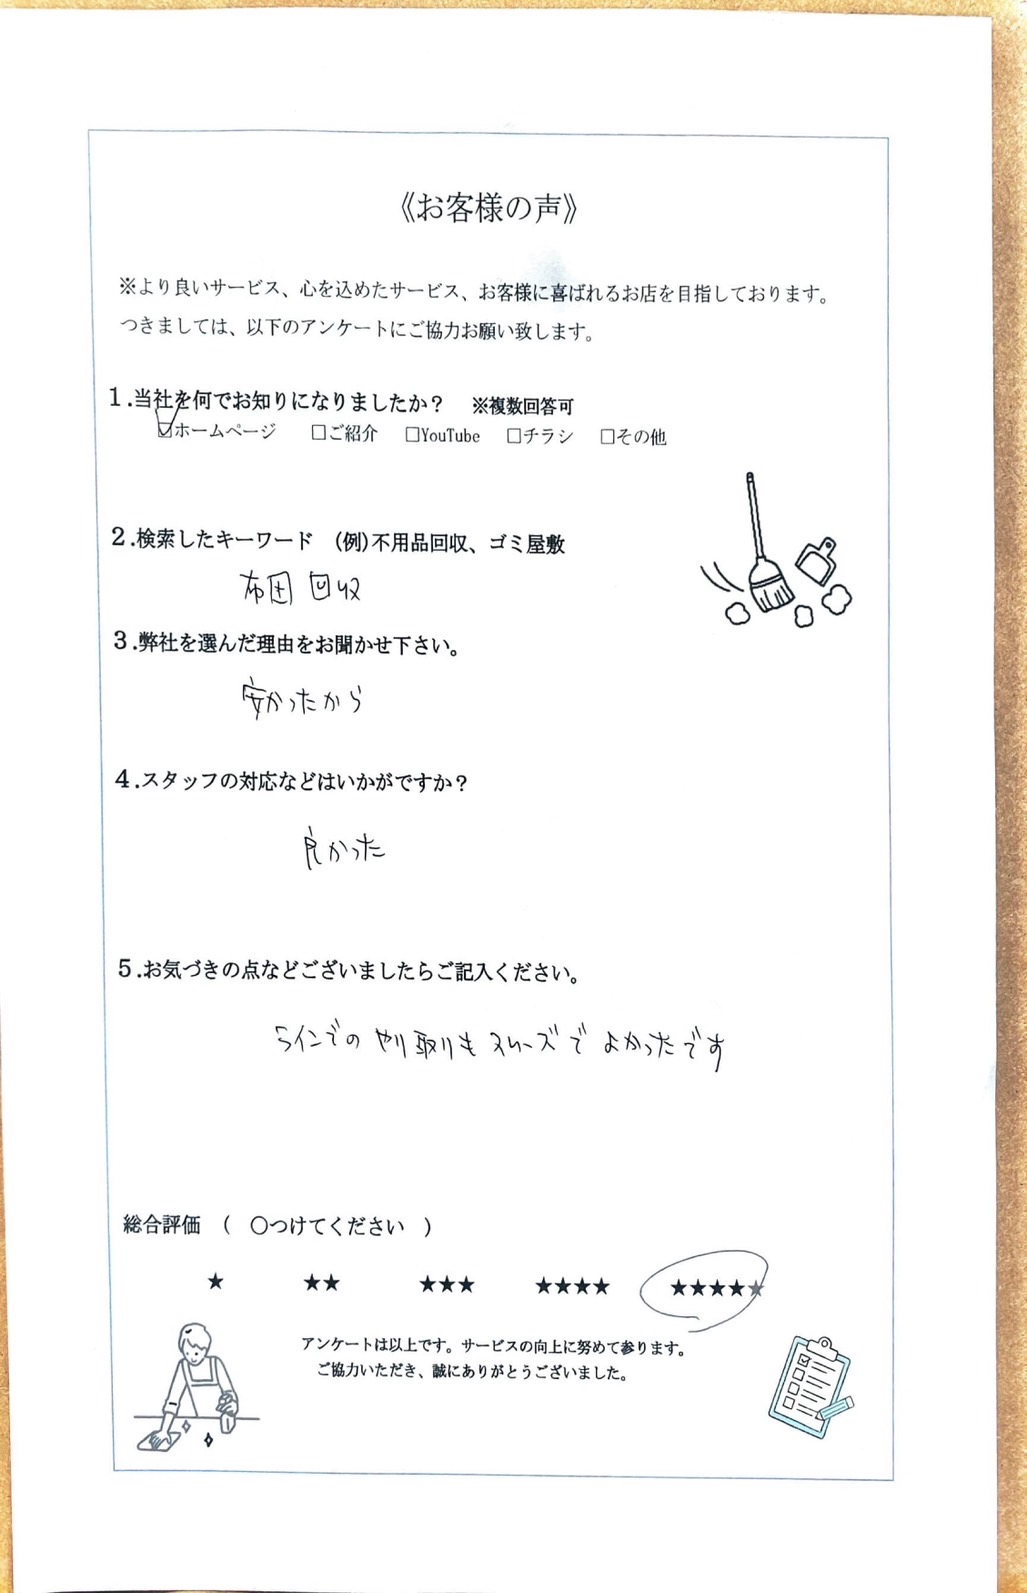 《お客様の声》
※より良いサービス、心を込めたサービス、お客様に喜ばれるお店を目指しております。
つきましては、以下のアンケートにご協力お願い致します。
1.当社を何でお知りになりましたか? ※複数回答可
☑ホームページ □ご紹介 □YouTube □チラシ □その他
2.検索したキーワード (例)不用品回収、ゴミ屋敷
布団 回収
3.弊社を選んだ理由をお聞かせ下さい。
安かったから
4.スタッフの対応などはいかがですか?
良かった
5.お気づきの点などございましたらご記入ください。
ラインでの やり取りも スムーズで よかったです
総合評価 ( ○つけてください )
★ ★★ ★★★ ★★★★ ★★★★★
アンケートは以上です。サービスの向上に努めて参ります。
ご協力いただき、誠にありがとうございました。